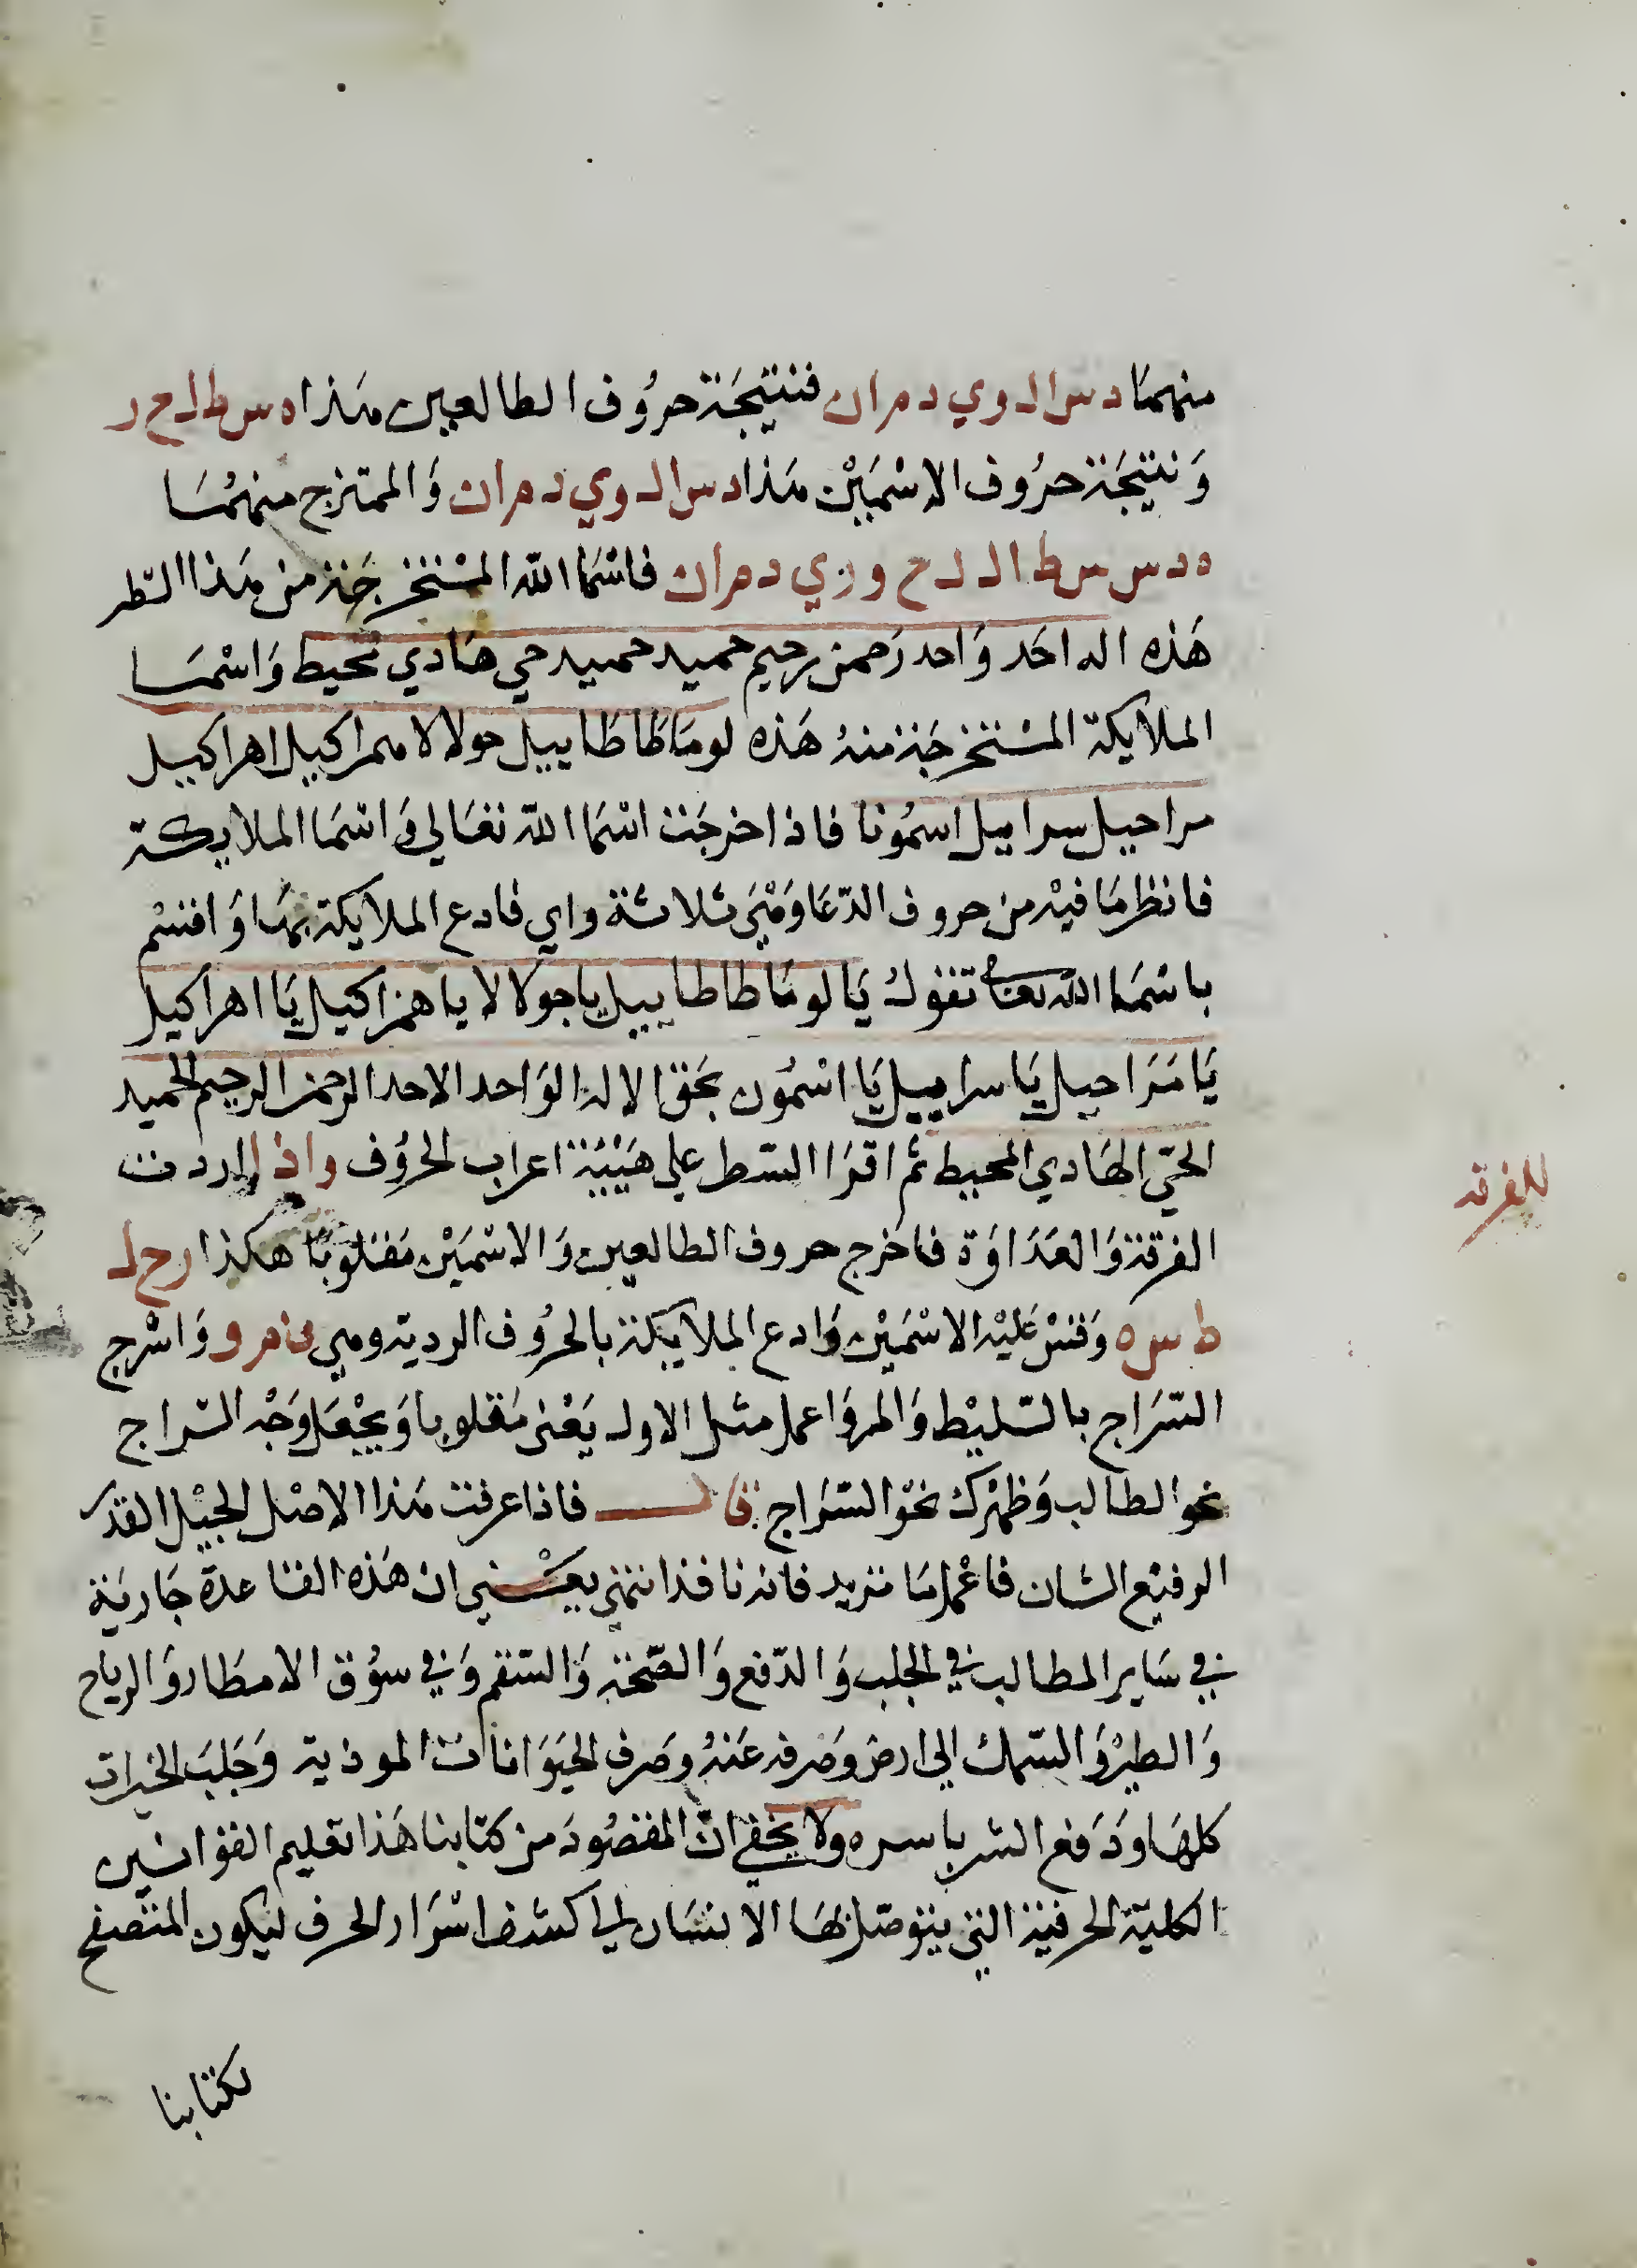 منهمَا د س ا ل د و ي د م ر ا ن فنتيجَة حرُوف الطالعين هَذا ه س ط ل ح ر
وَنتيجَة حرُوف الاسْمَيْن هَذا د س ا ل د و ي د م ر ا ن وَالممتزج منهمُا
ه د س س ط ا ل ل ح و ر ي د م ر ا ن فاسْمَا الله المسْتخرجَة من هَذا السّطر
هَذه اله احَد وَاحد رَحمن رحيم حميد حميد حي هَادي محيط وَاسْمَا
الملايكة المسْتخرجَة منهُ هَذه لومَا طَاطَاييل حولالا همراكيل اهراكيل
مراحيل سراييل اسمُونا فاذا اخرجَت اسْمَا اللّه تعَالي وَاسْمَا الملايكة
فانظر مَا فيْه من حروف الدّعَا وَهْيَ ثلاثة واي فادع الملايكة بهَا وَاقسْم
باسْمَا الله تعالى تقولُ يَا لومَا طاطاييل يا جولالا يا همراكيل يَا اهراكيل
يَا مَرَاحيل يَا سراييل يَا اسْمُون بحَق الاله الوَاحد الاحد الرحمن الرحيم الحميد
الحَيّ الهَادي المحيط ثم اقرَا السّطر علي هَيْئة اعراب الحرُوف واذا اردت
الفرقة وَالعدَاوَة فاخرج حروف الطالعين وَالاسْمَيْن مَقلوبًا هكذا ر ح ل
ط س ه وَقسْ عَليْه الاسْمَيْن وَادع الملايكة بالحرُوف الردية وهي وَاسْرج
السّرَاج بالسّليْط وَالمر وَاعمل مثل الاول يَعْنى مَقلوبا وَيجْعَل وَجْه السّراج
نحو الطالب وَظهْرك نحْو السّرَاج قال فاذا عرفت هَذا الاصْل الجليْل القدر
الرفيْع الشان فاعْمل مَا تريد فانه نافذ انتهى يعْني ان هَذه القاعدة جَاريَة
في سَاير المطالب في الجلب وَالدّفع وَالصّحة وَالسّقم وَفي سوُق الامطَار وَالريَاح
وَالطيْر وَالسّمك الي ارض وَصَرفه عَنهُ وصَرف الحيَوَانات الموذية وَجَلب الخيرات
كلهَا ودَفع الشر باسره ولا يخفى انّ المقصُودَ من كتابنا هَذا تعليم القوانين
الكليّة الحرفيّة التي يتوصّل بهَا الانسَان الي كشف اسْرَار الحرف ليكون المتصفح
لكتابنا
للفرقه